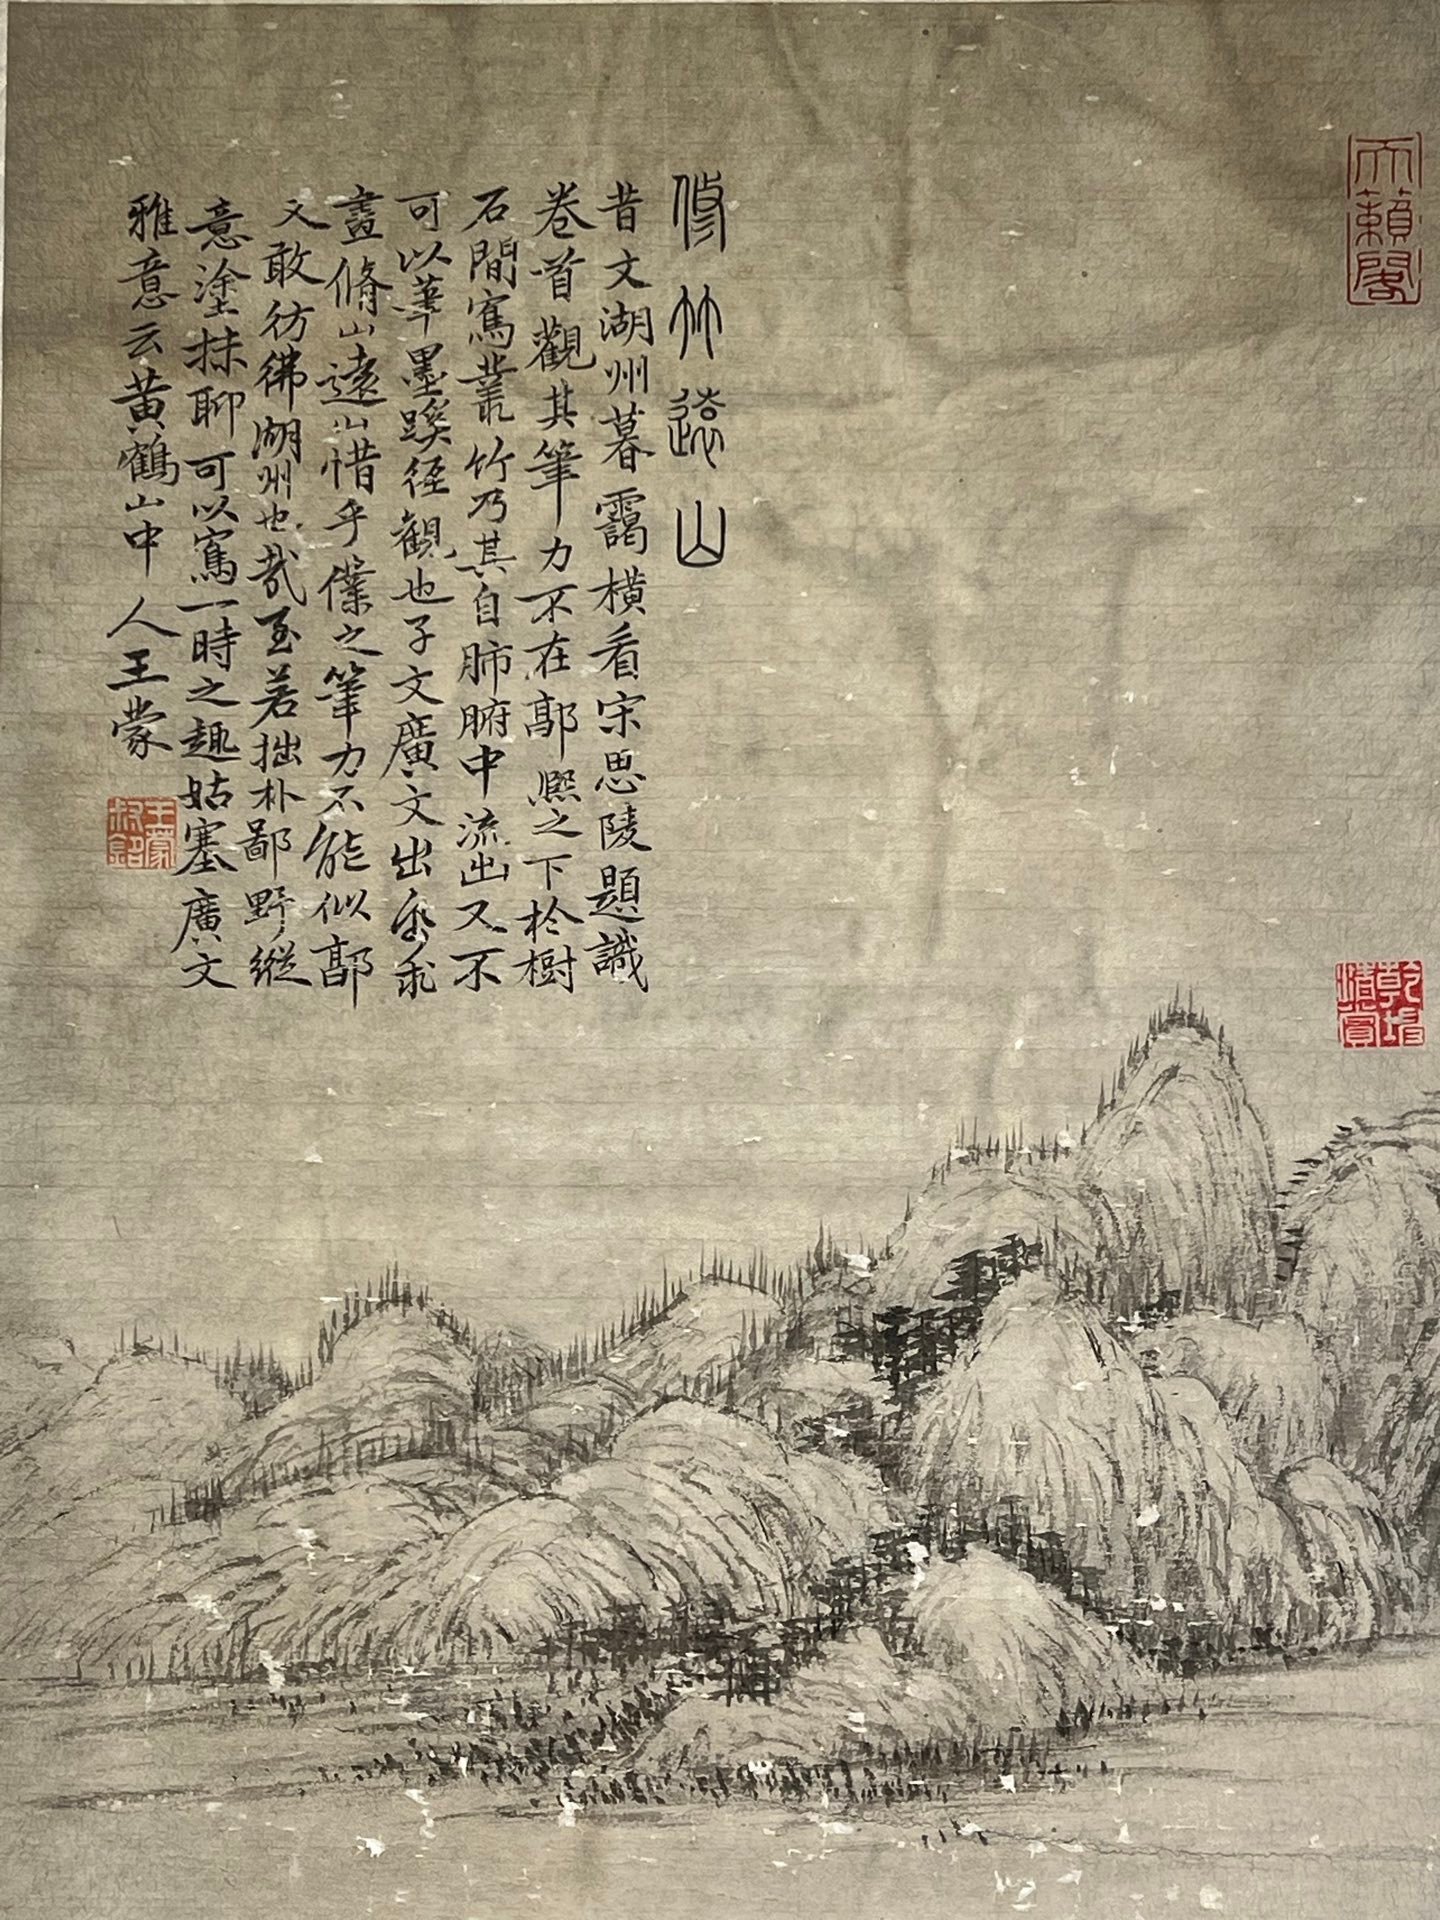 修竹遠山
昔文湖州暮靄橫看宋思陵題識
卷首觀其筆力不在郭熙之下於樹
石間寫叢竹乃其自肺腑中流出又不
可以筆墨蹊徑觀也子文廣文出𠂹
盡脩山遠山惜乎僕之筆力不能似郭
又敢彷彿湖州也哉至若拙朴鄙野縱
意塗抹聊可以寫一時之趣姑塞廣文
雅意云黃鶴山中人王蒙
王蒙
天籟閣
乾坤清賞